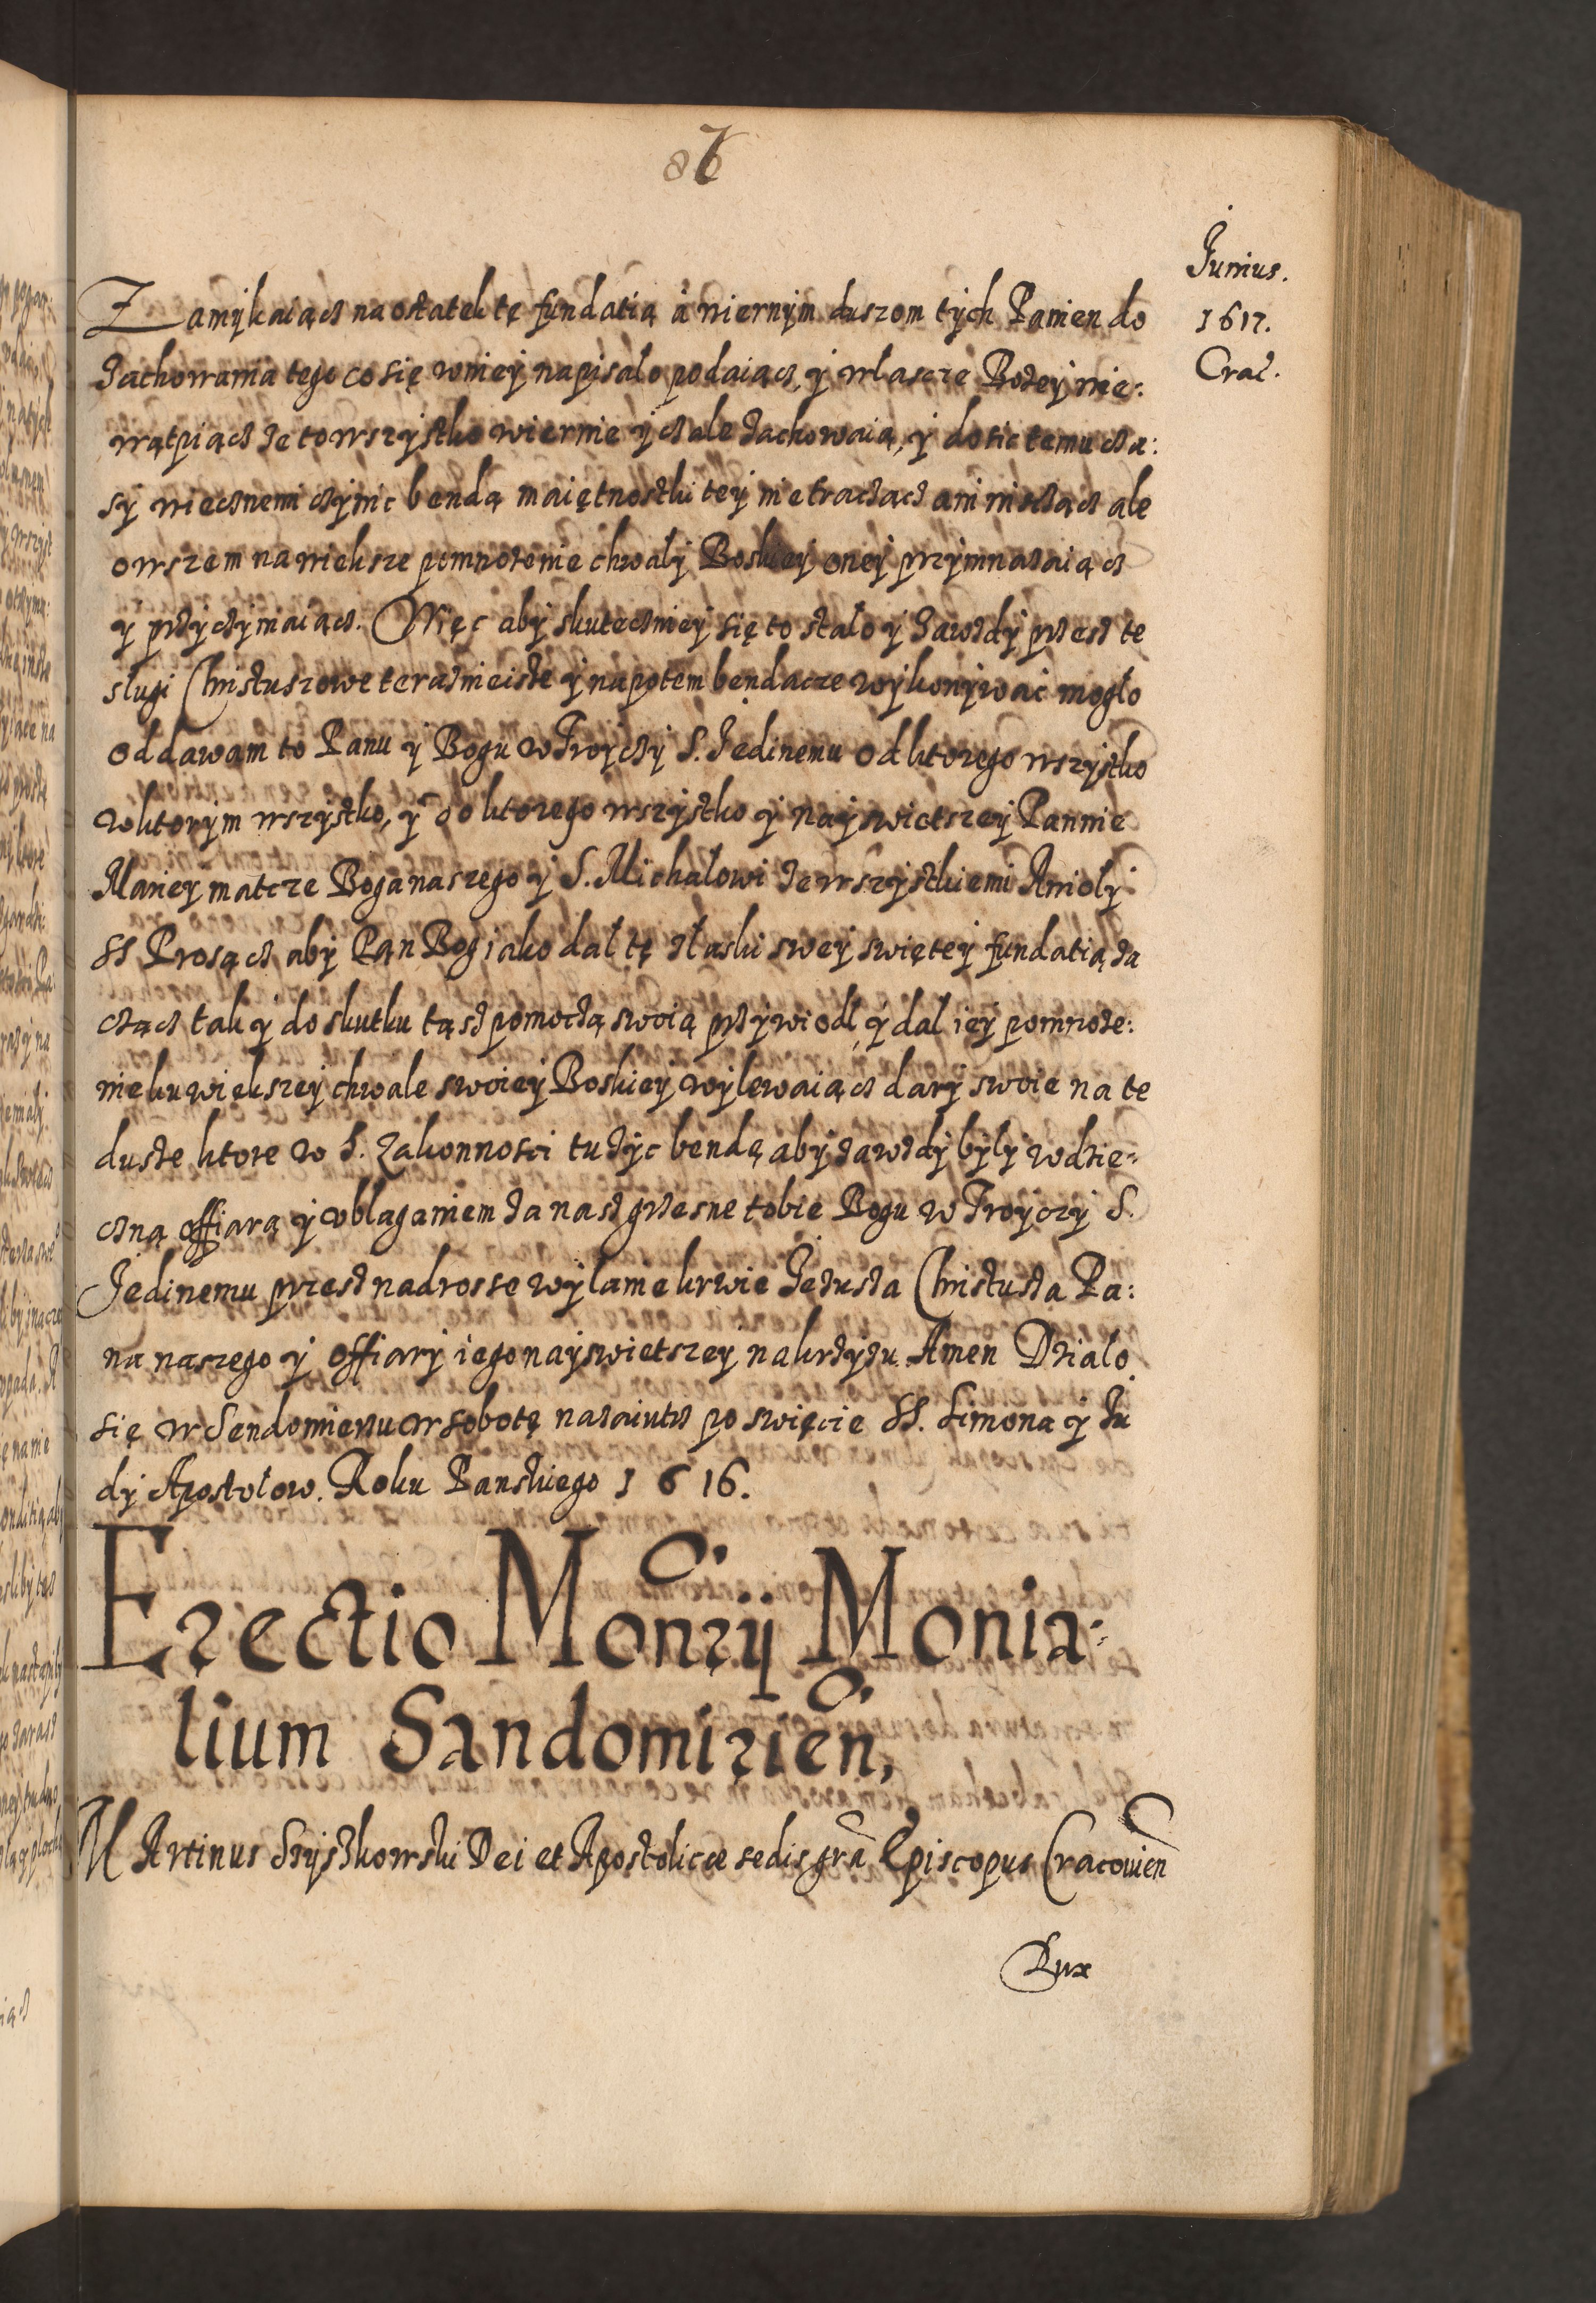 86
Junius.
1617.
Crac.
Zamykaiącz na ostatek tę fundatią a wiernym duszom tych Panien do
zachowania tego co się w niey napisalo podaiącz, y w lascze Bożey nie:
wątpiącz że to wszystko wiernie y czale zachowaią, y dosic temu cza:
sy wiecznemi czynic bendą maiętnostki tey nie traczącz ani niszcząc ale
owszem na wieksze pomnożenie chwaly Boskiey oney przymnażaiącz
y przyczyniaiącz. Więc aby skuteczniey się to stalo y zawżdy przez te
slugi Christuszowe teraznieisze y napotem bendacze wykonywać moglo
oddawam to Panu y Bogu w Troyczy S. Jedinemu od ktorego wszystko
w ktorym wszystko, y do ktorego wszystko y nayswietszey Pannie
Mariey matcze Boga naszego y S. Michalowi ze wszystkiemi Anioly
SS Prosącz aby Pan Bog iako dal tę z laski swey świętey fundatią za
cząćz tak y do skutku tąsz pomoczą swoią przywiodl, y dal iey pomnoże:
nie ku większey chwale swoiey Boskiey wylewaiącz dary swoie na te
dusze ktore w S. Zakonnosci tu życ bendą aby zawżdy byly wdzie:
czną offiarą y vblaganiem za nasz grzesne tobie Bogu w Troyczy S.
Jedinemu przesz nadrossze wylanie krwie Jezusza Christusza Pa:
na naszego y offiary iego nayswietszey na krzyżu. Amen Dzialo
się w Sendomierzu w sobotę nazaiutrz po święcie SS. Simona y Ju
dy Apostolow. Roku Panskiego 1616.
Erectio Monrÿ Monia:
lium Sandomirien,
MArtinus Szyszkowski Dei et Apostolicæ sedis gra Episcopus Cracovien
Dux